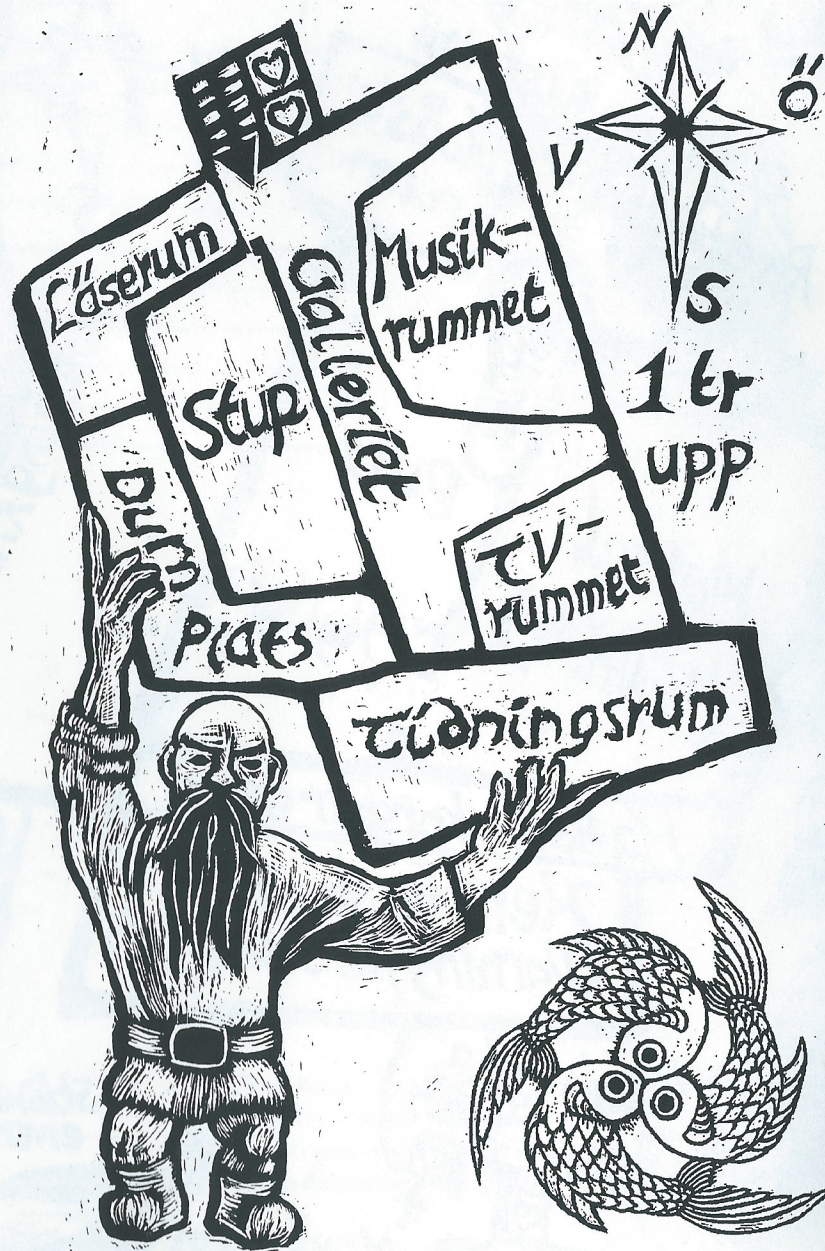 N
Ö
V
S
1 tr
upp
Läserum
Galleriet
Musik-
rummet
Stup
Dum
Plats
TV-
rummet
Tidningsrum